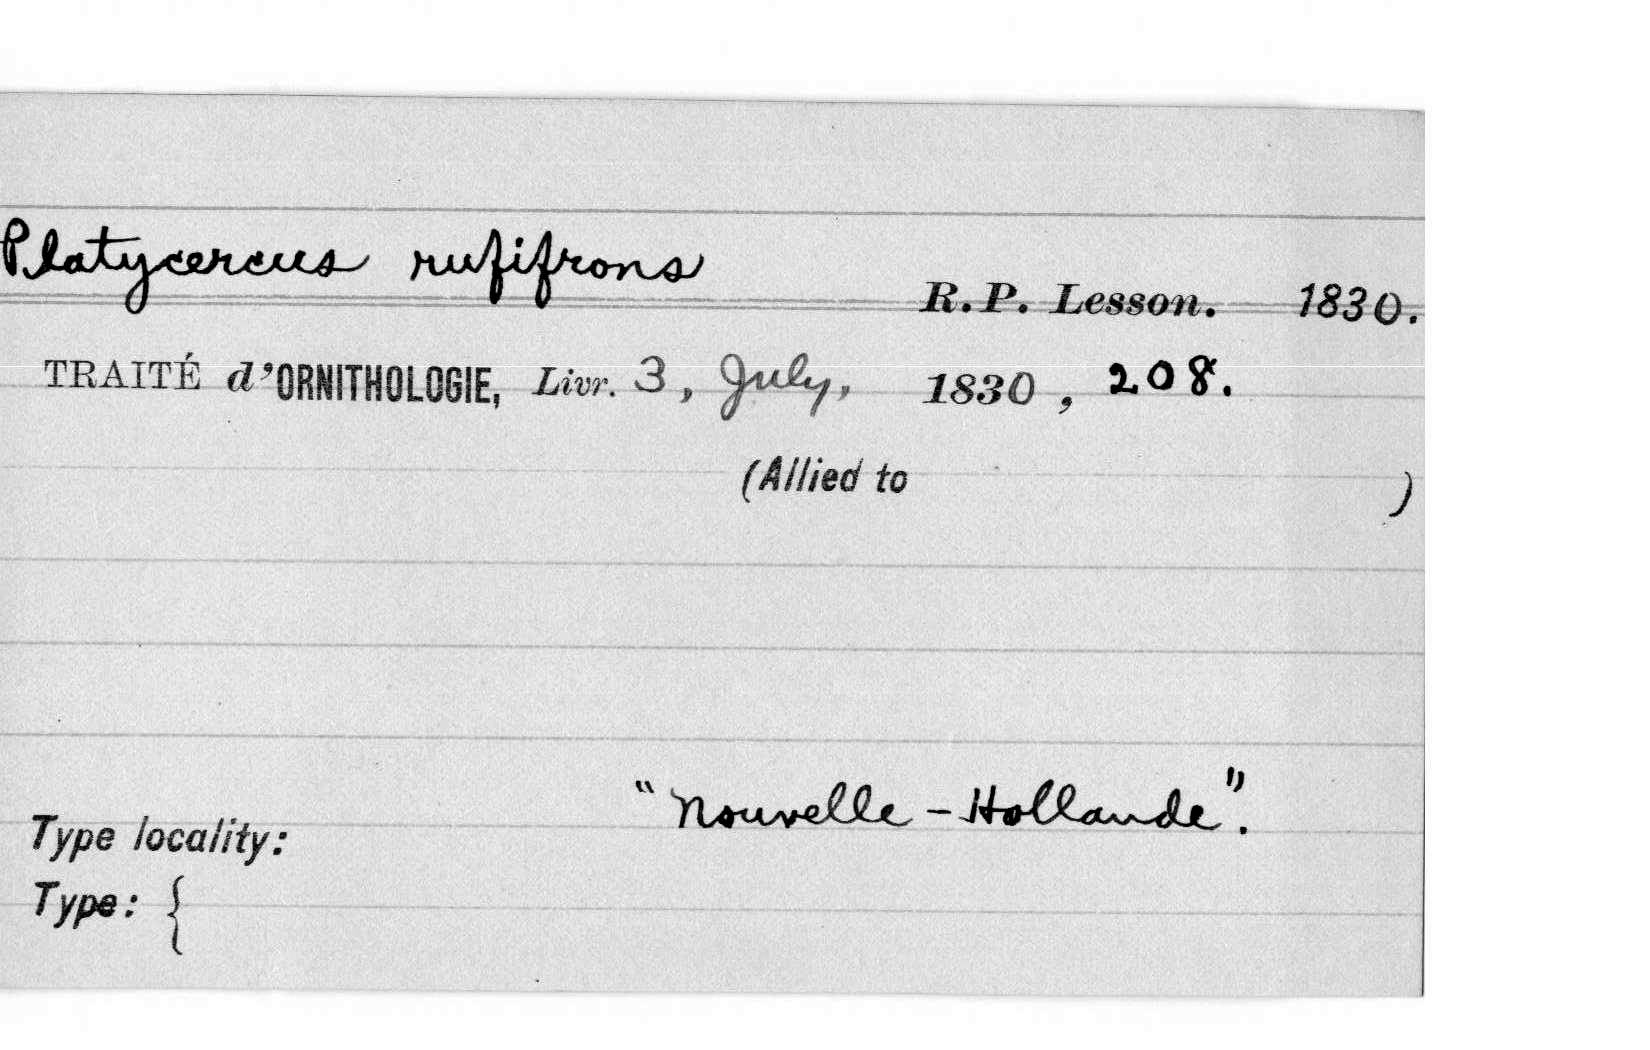 Platycercus rufifrons
R.P. Lesson. 1830.
TRAITÉ d'ORNITHOLOGIE, Livr. 3, July, 1830, 208.
(Allied to )
"Nouvelle-Hollande".
Type locality:
Type: {